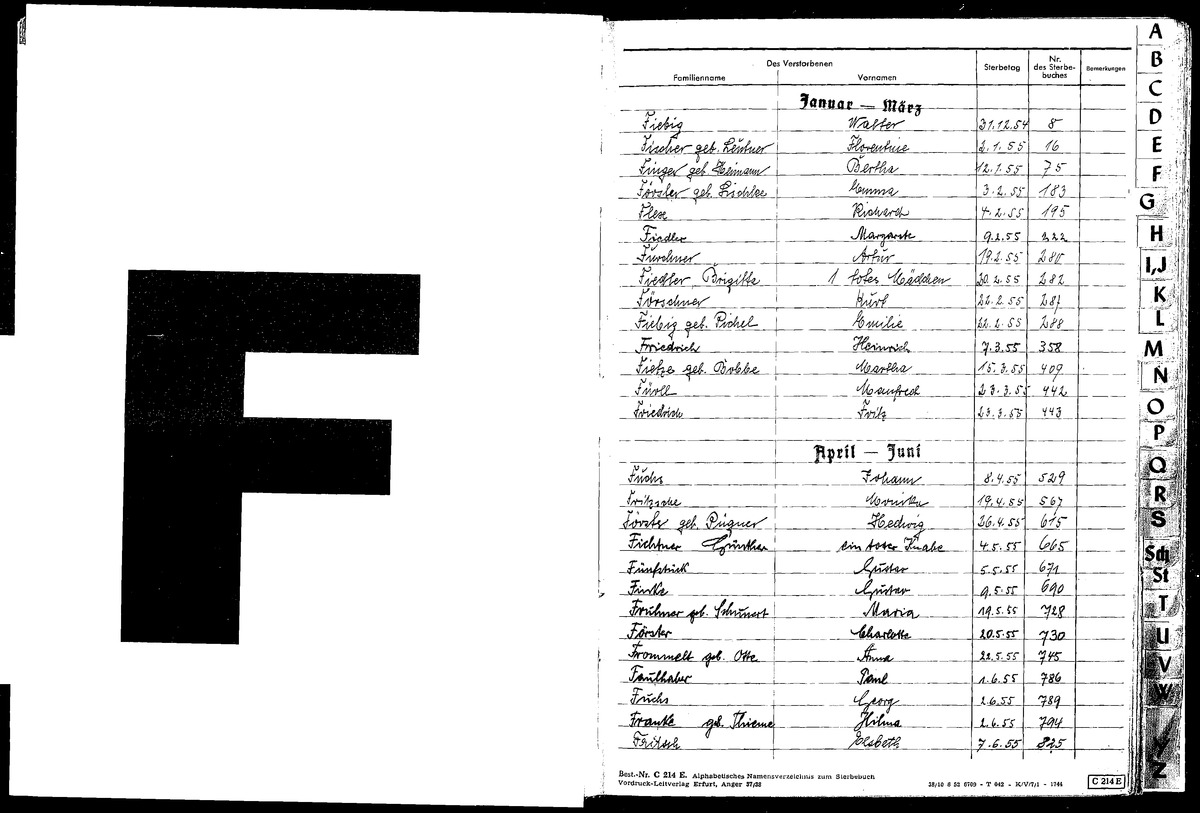 F
Des Verstorbenen
Familienname Vornamen Sterbetag Nr. des Sterbe-buches Bemerkungen
Januar — März
Fiebig Walter 31.12.54 8
Fischer geb. Leutner Florentine 2.1.55 16
Finger geb. Heimann Bertha 12.1.55 75
Förster geb. Lischke Emma 3.2.55 183
Flese Richard 4.2.55 195
Fiedler Margarete 9.2.55 222
Furchner Artur 19.2.55 280
Fiedler Brigitte 1 totes Mädchen 20.2.55 282
Förschner Kurt 22.2.55 287
Fiebig geb. Pichel Emilie 22.2.55 288
Friedrich Heinrich 7.3.55 358
Fietze geb. Bobbe Martha 15.3.55 409
Füroll Manfred 23.3.55 442
Friedrich Fritz 23.3.55 443
April — Juni
Fuchs Johann 8.4.55 529
Fritzsche Monika 19.4.55 567
Förster geb. Pügner Hedwig 26.4.55 615
Fichtner Günther ein toter Knabe 4.5.55 665
Fünfstück Gustav 5.5.55 671
Finke Gustav 9.5.55 690
Fruhner geb. Schunert Maria 19.5.55 728
Förster Charlotte 20.5.55 730
Frommelt geb. Otte Anna 22.5.55 745
Faulhaber Paul 1.6.55 786
Fuchs Georg 2.6.55 789
Franke geb. Thieme Hilma 2.6.55 794
Fritsch Elsbeth 7.6.55 825
Best.-Nr. C 214 E. Alphabetisches Namensverzeichnis zum Sterbebuch
Vordruck-Leitverlag Erfurt, Anger 37/38 38/10 6 52 6769 - T 042 - K/V/7/1 - 1744 C 214 E
A
B
C
D
E
F
G
H
I,J
K
L
M
N
O
P
Q
R
S
Sch
St
T
U
V
W
Z